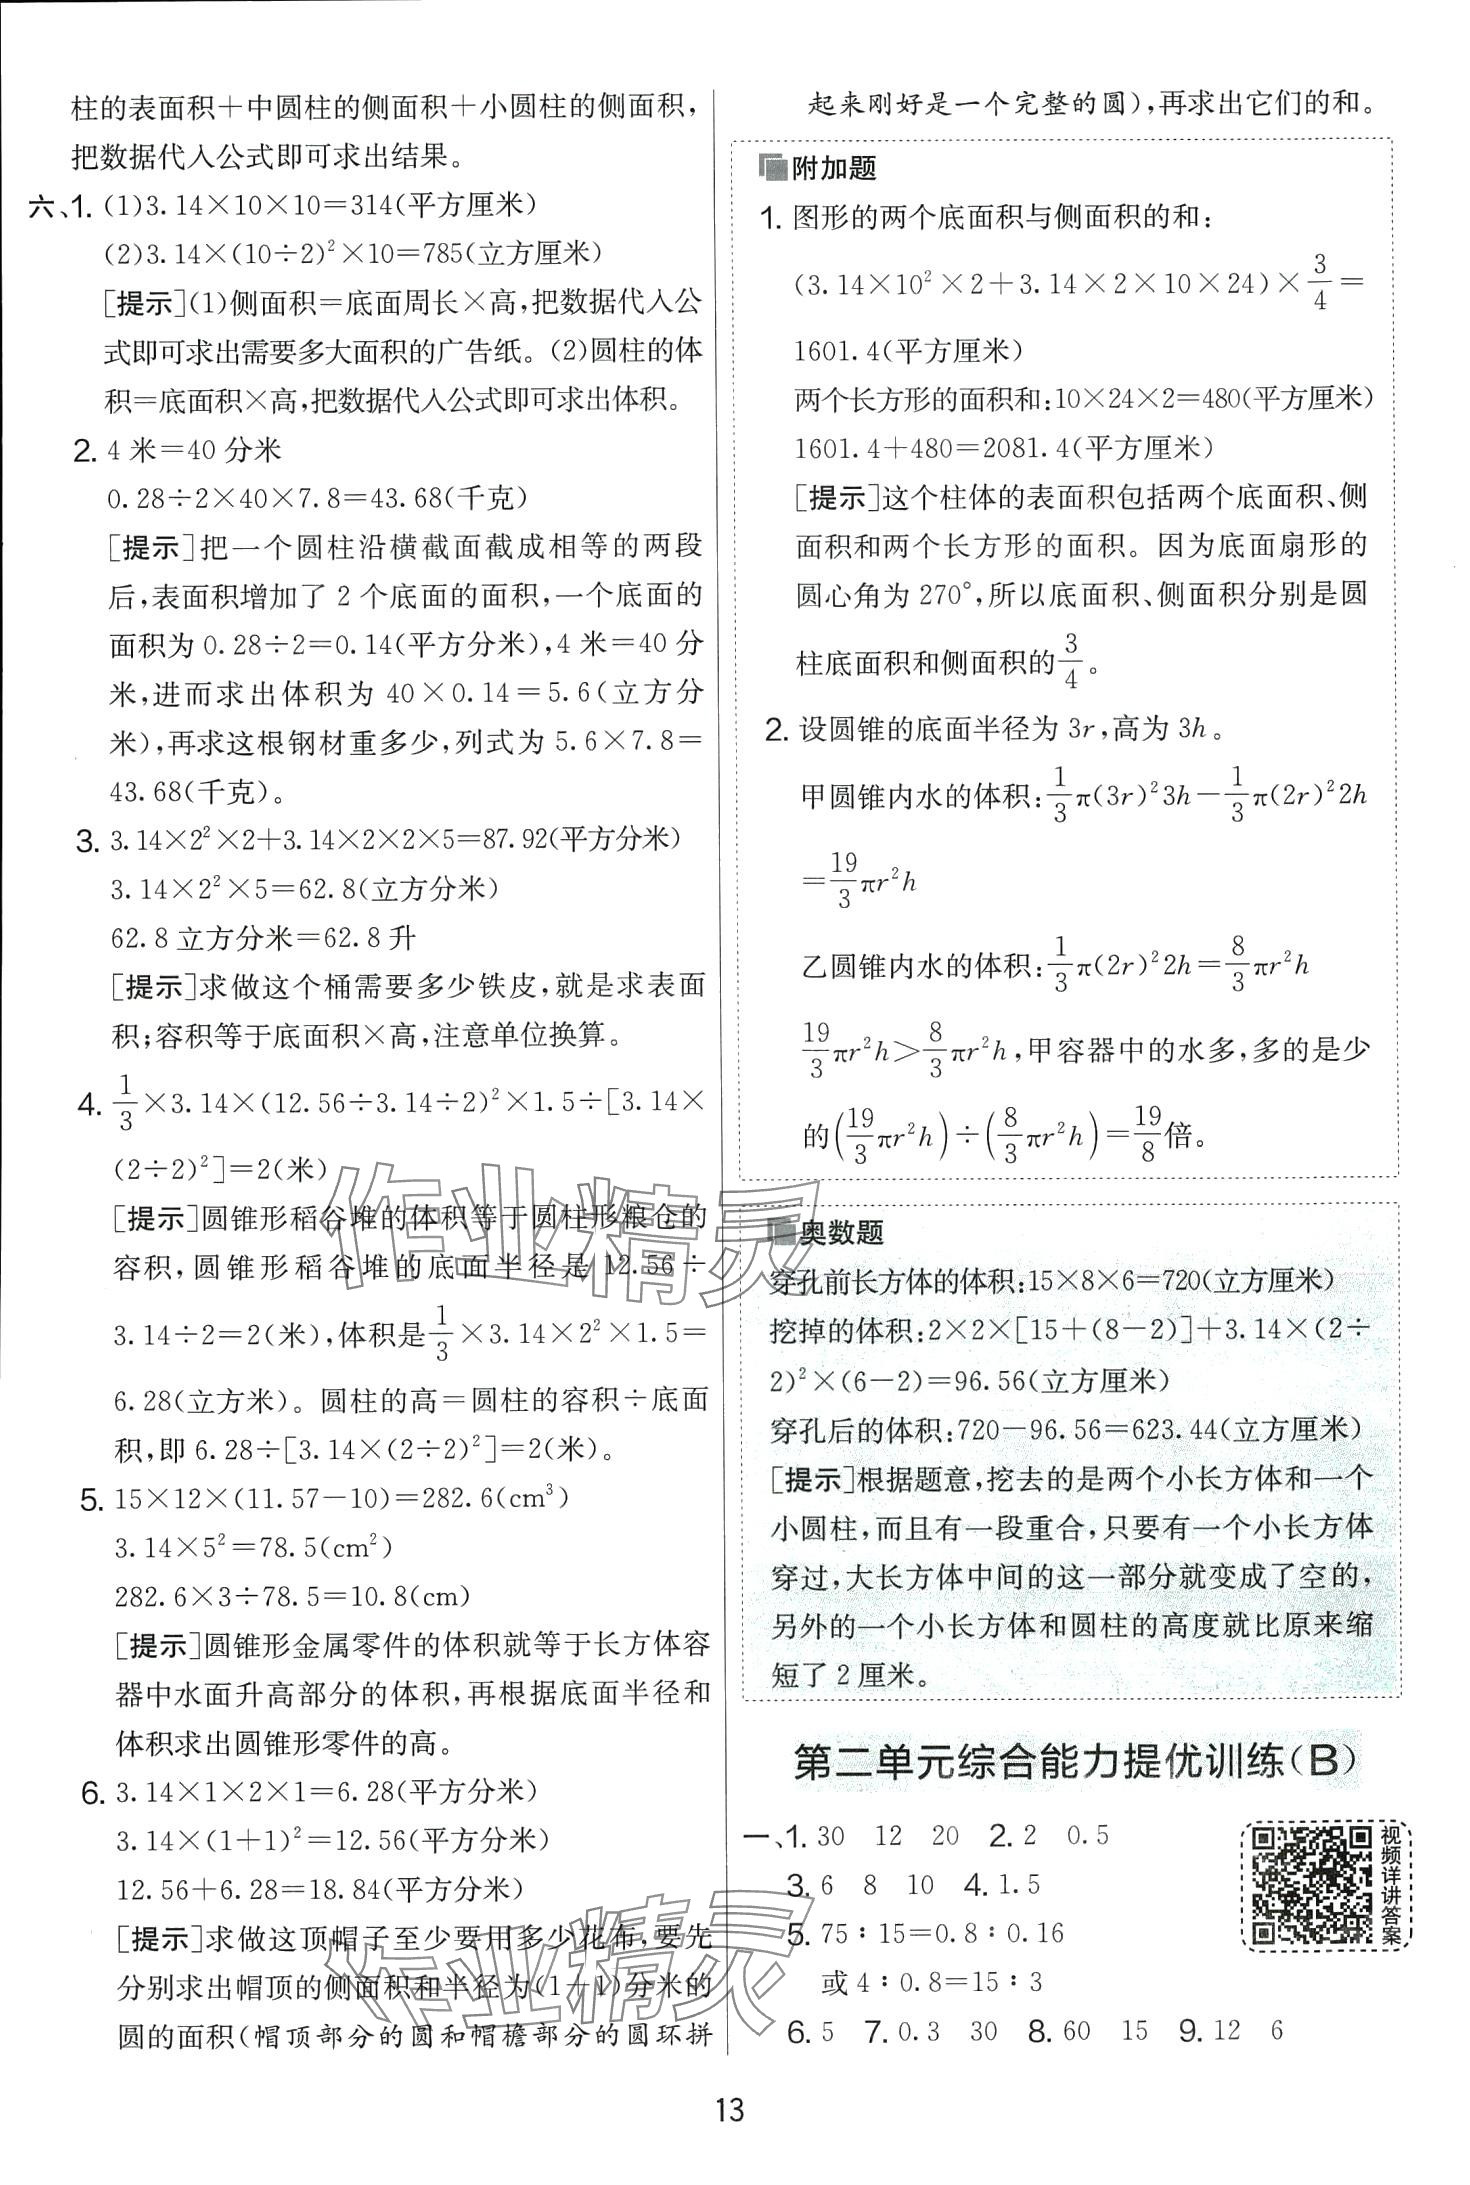 柱的表面积＋中圆柱的侧面积＋小圆柱的侧面积，
把数据代入公式即可求出结果。
六、1. (1)3.14×10×10=314(平方厘米)
(2)3.14×(10÷2)²×10=785(立方厘米)
[提示](1)侧面积＝底面周长×高，把数据代入公
式即可求出需要多大面积的广告纸。(2)圆柱的体
积＝底面积×高，把数据代入公式即可求出体积。
2. 4 米＝40 分米
0.28÷2×40×7.8=43.68(千克)
[提示]把一个圆柱沿横截面截成相等的两段
后，表面积增加了 2 个底面的面积，一个底面的
面积为 0.28÷2=0.14(平方分米)，4 米＝40 分
米，进而求出体积为 40×0.14=5.6(立方分
米)，再求这根钢材重多少，列式为 5.6×7.8=
43.68(千克)。
3. 3.14×2²×2+3.14×2×2×5=87.92(平方分米)
3.14×2²×5=62.8(立方分米)
62.8 立方分米=62.8 升
[提示]求做这个桶需要多少铁皮，就是求表面
积；容积等于底面积×高，注意单位换算。
4. 1/3×3.14×(12.56÷3.14÷2)²×1.5÷[3.14×
(2÷2)²]=2(米)
[提示]圆锥形稻谷堆的体积等于圆柱形粮仓的
容积，圆锥形稻谷堆的底面半径是 12.56÷
3.14÷2=2(米)，体积是1/3×3.14×2²×1.5=
6.28(立方米)。圆柱的高＝圆柱的容积÷底面
积，即 6.28÷[3.14×(2÷2)²]=2(米)。
5. 15×12×(11.57-10)=282.6(cm³)
3.14×5²=78.5(cm²)
282.6×3÷78.5=10.8(cm)
[提示]圆锥形金属零件的体积就等于长方体容
器中水面升高部分的体积，再根据底面半径和
体积求出圆锥形零件的高。
6. 3.14×1×2×1=6.28(平方分米)
3.14×(1+1)²=12.56(平方分米)
12.56+6.28=18.84(平方分米)
[提示]求做这顶帽子至少要用多少花布，要先
分别求出帽顶的侧面积和半径为(1+1)分米的
圆的面积(帽顶部分的圆和帽檐部分的圆环拼
起来刚好是一个完整的圆)，再求出它们的和。
附加题
1. 图形的两个底面积与侧面积的和：
(3.14×10²×2+3.14×2×10×24)×3/4=
1601.4(平方厘米)
两个长方形的面积和：10×24×2=480(平方厘米)
1601.4+480=2081.4(平方厘米)
[提示]这个柱体的表面积包括两个底面积、侧
面积和两个长方形的面积。因为底面扇形的
圆心角为 270°，所以底面积、侧面积分别是圆
柱底面积和侧面积的3/4。
2. 设圆锥的底面半径为 3r，高为 3h。
甲圆锥内水的体积：1/3π(3r)²3h-1/3π(2r)²2h
=19/3πr²h
乙圆锥内水的体积：1/3π(2r)²2h=8/3πr²h
19/3πr²h>8/3πr²h，甲容器中的水多，多的是少
的(19/3πr²h)÷(8/3πr²h)=19/8倍。
奥数题
穿孔前长方体的体积：15×8×6=720(立方厘米)
挖掉的体积：2×2×[15+(8-2)]+3.14×(2÷
2)²×(6-2)=96.56(立方厘米)
穿孔后的体积：720-96.56=623.44(立方厘米)
[提示]根据题意，挖去的是两个小长方体和一个
小圆柱，而且有一段重合，只要有一个小长方体
穿过，大长方体中间的这一部分就变成了空的，
另外的一个小长方体和圆柱的高度就比原来缩
短了 2 厘米。
第二单元综合能力提优训练(B)
一、1. 30 12 20 2. 2 0.5
3. 6 8 10 4. 1.5
5. 75∶15=0.8∶0.16
或 4∶0.8=15∶3
6. 5 7. 0.3 30 8. 60 15 9. 12 6
视频详讲答案
13
作业精灵
作业精灵